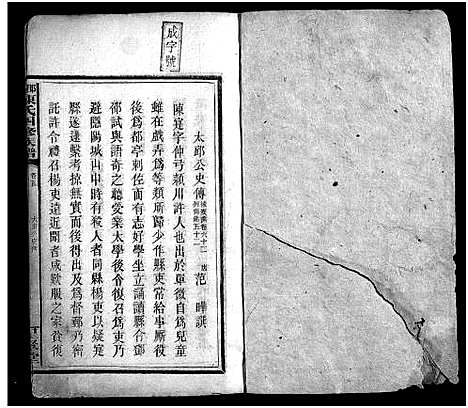 成字號
太邱公史傳 後漢書卷六十二 列傳第五十二 范 曄 譔
陳寔字仲弓潁川許人也出於單微自為兒童
雖在戲弄為等類所歸少作縣吏常給事廝役
後為都亭刺佐而有志好學坐立誦讀縣令鄧
邵試與語奇之聽受業太學後令復召為吏乃
避隱陽城山中時有殺人者同縣楊吏以疑寔
縣遂逮繫考掠無實而後得出及為督郵乃密
託許令禮召楊吏遠近聞者咸歎服之家貧復
陳氏四修族譜